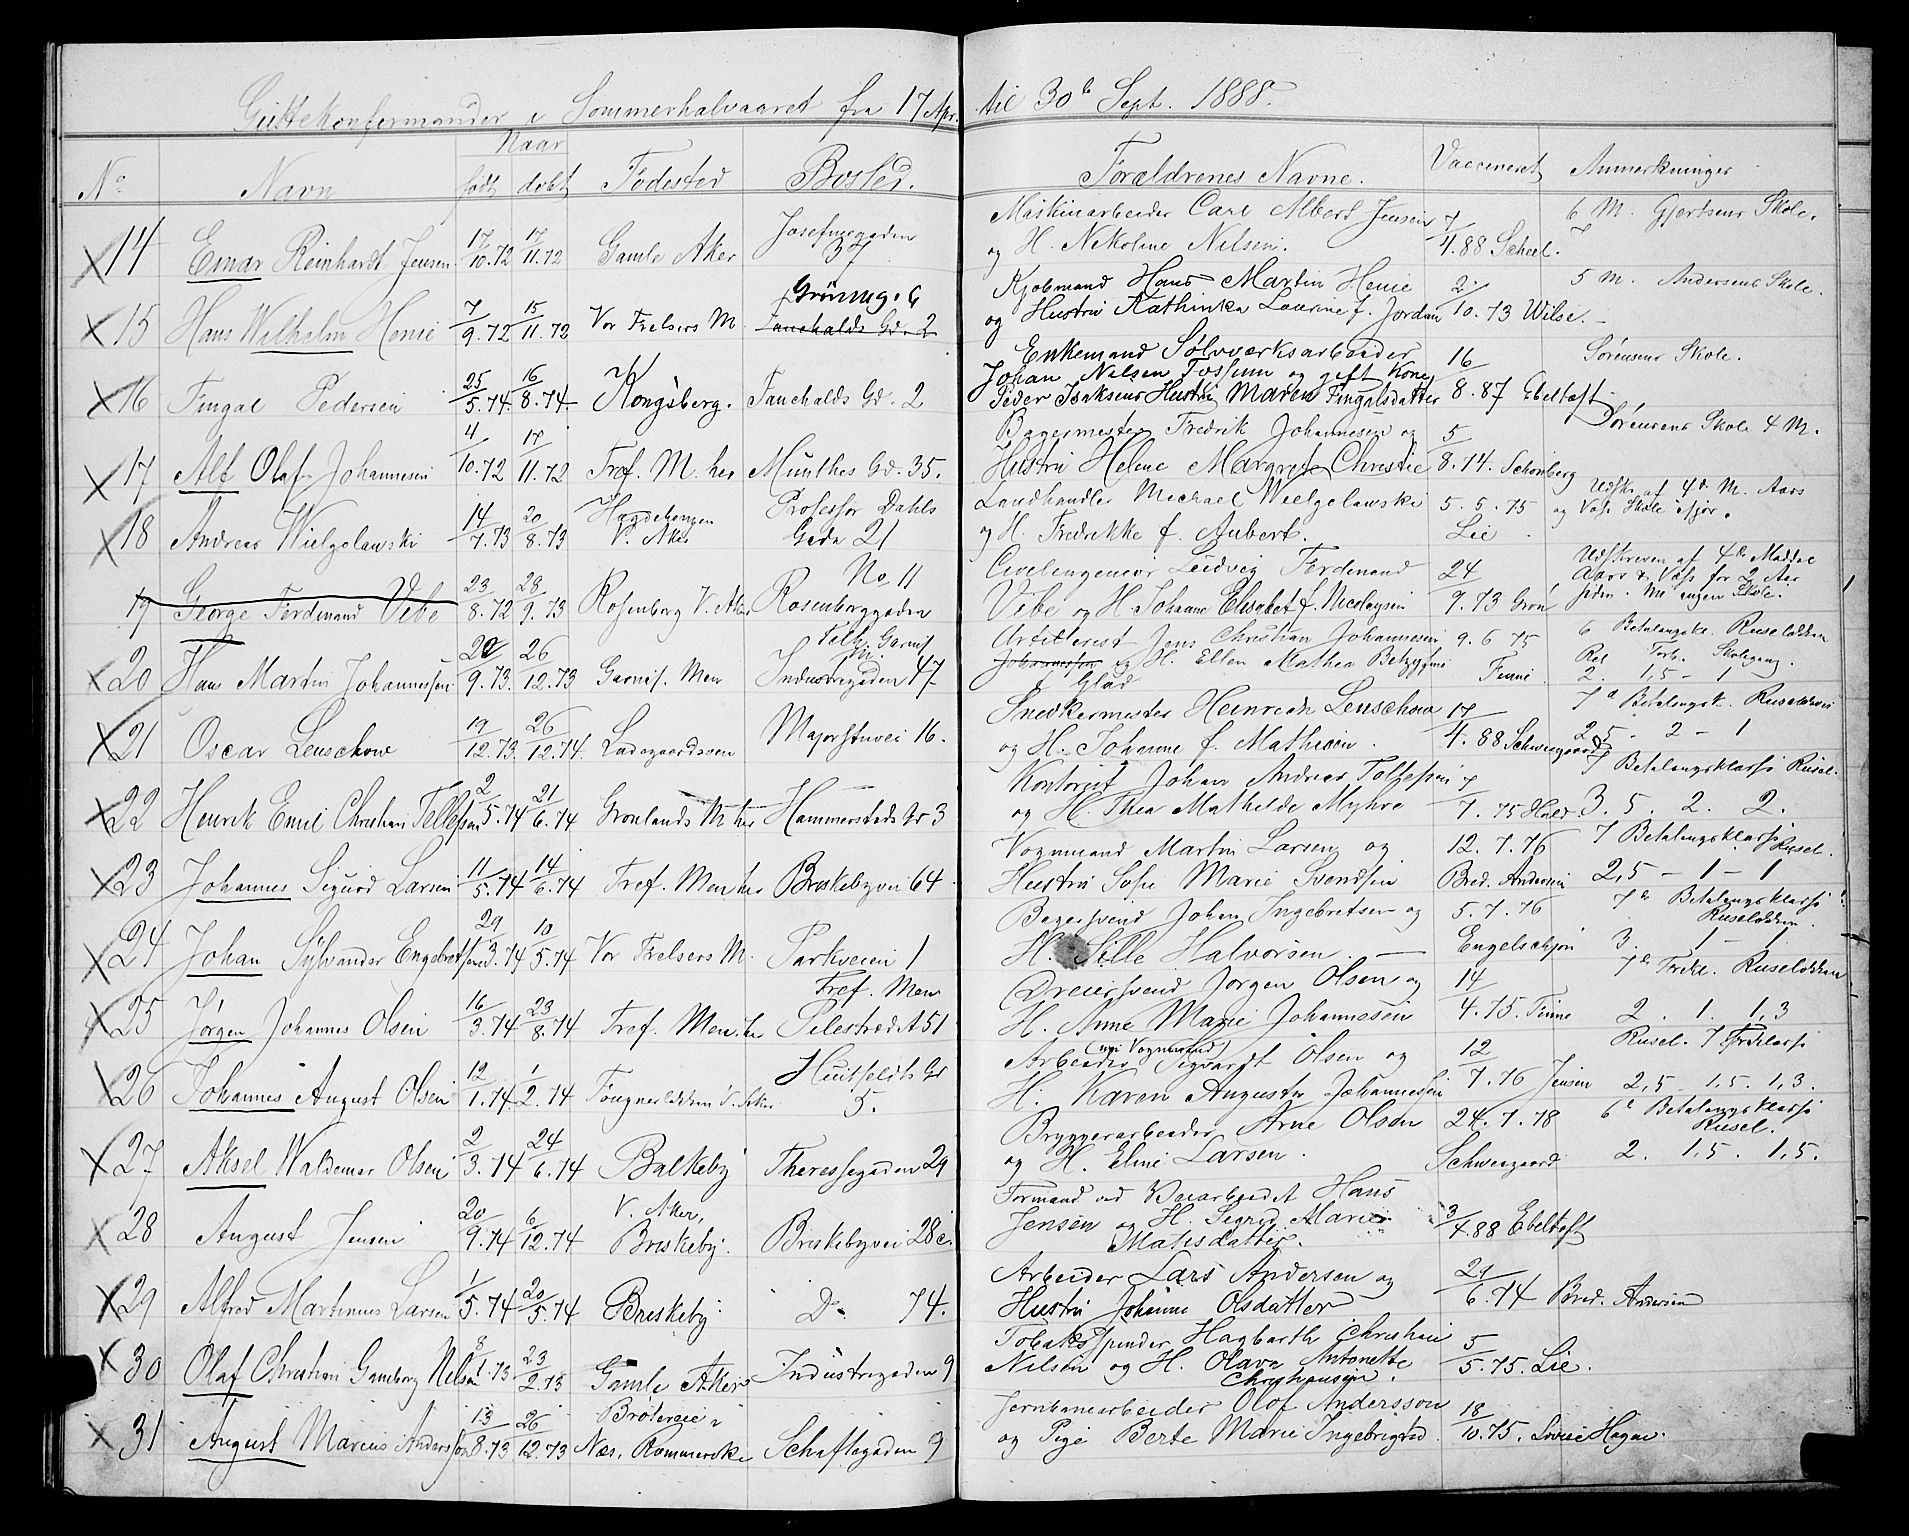 Guttekonfirmander i Sommerhalvaaret fra 17 Apr. til 30te Sept. 1888.
No Navn Naar født døbt Fødested Bosted. Forældrenes Navne. Vaccineret Anmerkninger
14 Einar Reinhardt Jensen 17/10.72 17/11.72 Gamle Aker Josefinegaden 37
Maskinarbeider Carl Albert Jensen og H. Nikoline Nilsen. 7/4.88 Scheel. 6 M. Gjertsens Skole.
15 Hans Wilhelm Henie 7/9.72 15/11.72 Vor Frelsers M. Grønneg. 6 Fauchalds Gd. 2
Kjøbmand Hans Martin Henie og Hustru Kathinka Laurine f. Jordan 2/10.73 Wilse. 5 M. Andersens Skole.
16 Fingal Pedersen 25/5.74. 16/8.74. Kongsberg. Fauchalds Gd. 2
Enkemand Sølvverksarbeider Johan Nilsen Fossum og gift Kone Peder Isaksens Hustru Maren Fingalsdatter 16/8.87 Ebeltoft. Sørensens Skole.
17 Alf Olaf Johannesen 4/10.72 17/11.72 Tref. M. her Munthes Gd. 35.
Bagermester Fredrik Johannesen og Hustru Helene Margrete Christie 5/8.74. Schønberg Sørensens Skole 4 M.
18 Andreas Wielgolawski 14/7.73 20/8.73 Hagdehougen V. Aker Professor Dahls Gade 21
Landhandler Michael Wielgolawski og H. Fredrikke f. Aubert. 5.5.75 Lie. Udskr. af 4de M. Aars og Voss Skole ifjor.
19 George Ferdinand Vibe 23/8.72 28/9.73 Rosenborg V. Aker No 11 Rosenborggaden
Civilingeniør Ludvig Ferdinand Vibe og H. Johanne Elisabet f. Nicolaysen 24/9.73 Grøn Udskreven af 4de Middel Aars & Voss for 2 Aar siden. Nu ingen Skole.
20 Hans Martin Johannesen 20/9.73. 26/12.73 Garnis. Men Tilh. Garnis. Industrigaden 47
Artillerist Jens Christian Johannesen Johannesen og H. Ellen Mathea f. Glad 9.6.75 Finne. 6 Betalingskl. Ruseløkken Rel Forb. Skolegang. 2. 1,5 – 1
21 Oscar Lenschow 19/12.73. 26/12.74. Ladegaardsveien Majorstuvei 16.
Snedkermester Heinrich Lenschow og H. Johanne f. Mathisen. 17/4.88 Schweigaard 7de Betalingsk. Ruseløkvei 2,5 – 2 – 1
22 Henrik Emil Christian Tellefsen 2/5.74 21/6.74 Grønlands M. her Hammerstads Gd 3
Kontorist Johan Andreas Tollefsen og H. Thea Mathilde Myhre 7/7.75 Hald. 7 Betalingsklasse Rusel. 3,5. 2. 2.
23 Johannes Sigurd Larsen 11/5.74 14/6.74 Tref. Men. her Briskebyvei 64
Vognmand Martin Larsen og Hustru Sofie Marie Svendsen 12.7.76 Bred. Andersen 7 Betalingsklasse Rusel. 2,5 – 1 – 1
24 Johan Sylvander Engebretsen 29/3.74 10/5.74 Vor Frelsers M. Parkveien 1
Bagersvend Johan Ingebretsen og H. Sille Halvorsen. 5.7.76 Engelschjøn 7de Betalingsklasse Ruseløkken. 3. 1 – 1.
25 Jørgen Johannes Olsen 16/3.74 23/8.74 Tref. Men. her Tref. Men Pilestrædet 51
Dreiersvend Jørgen Olsen og H. Anne Marie Johannesen 14/4.75. Finne 7de Frikl. Ruseløkken 2. 1. 1,3
26 Johannes August Olsen 12/1.74. 1/2.74 V. Aker Huitfeldts Gd 5.
Arbeider (nu Vognmand) Sigvardt Olsen og H. Karen Augusta Johannesen 12/7.76 Jensen Rusel. 7 Friklasse 2,5 – 1,5. 1,3.
27 Aksel Waldemar Olsen 2/3.74 24/6.74 Balkeby Theresesgaden 29
Bryggerarbeider Arne Olsen og H. Eline Larsen. 24.7.78 Schweigaard 6te Betalingsklasse Rusel. 2. 1,5. 1,5.
28 August Jensen 20/9.74 6/12.74 V. Aker, Briskeby. Briskebyvei 28c.
Formand ved Veiarbeidet Hans Jensen og H. Sigrid Marie Matisdatter. 3/4.88 Ebeltoft
29 Alfred Martinius Larsen 1/5.74 20/5.74 Briskeby. Do 74.
Arbeider Lars Andersen og Hustru Johanne Olsdatter 21/6.74 Bred. Andersen
30 Olaf Christian Gamborg Nilsen 8/1.73 23/2.73 Gamle Aker Industrigaden 9
Tobakspinder Hagbarth Christian Nilsen og H. Olava Antonette Christiansen. 5/5.75. Lie.
31 August Marius Andersson 13/8.73 26/12.73 Brøterøie i Næs, Rommerike Schaftegaden 9
Jernbanearbeider Olof Andersson og Pige Berte Marie Ingebrigtsd. 18/10.75. Lovise Hagen.